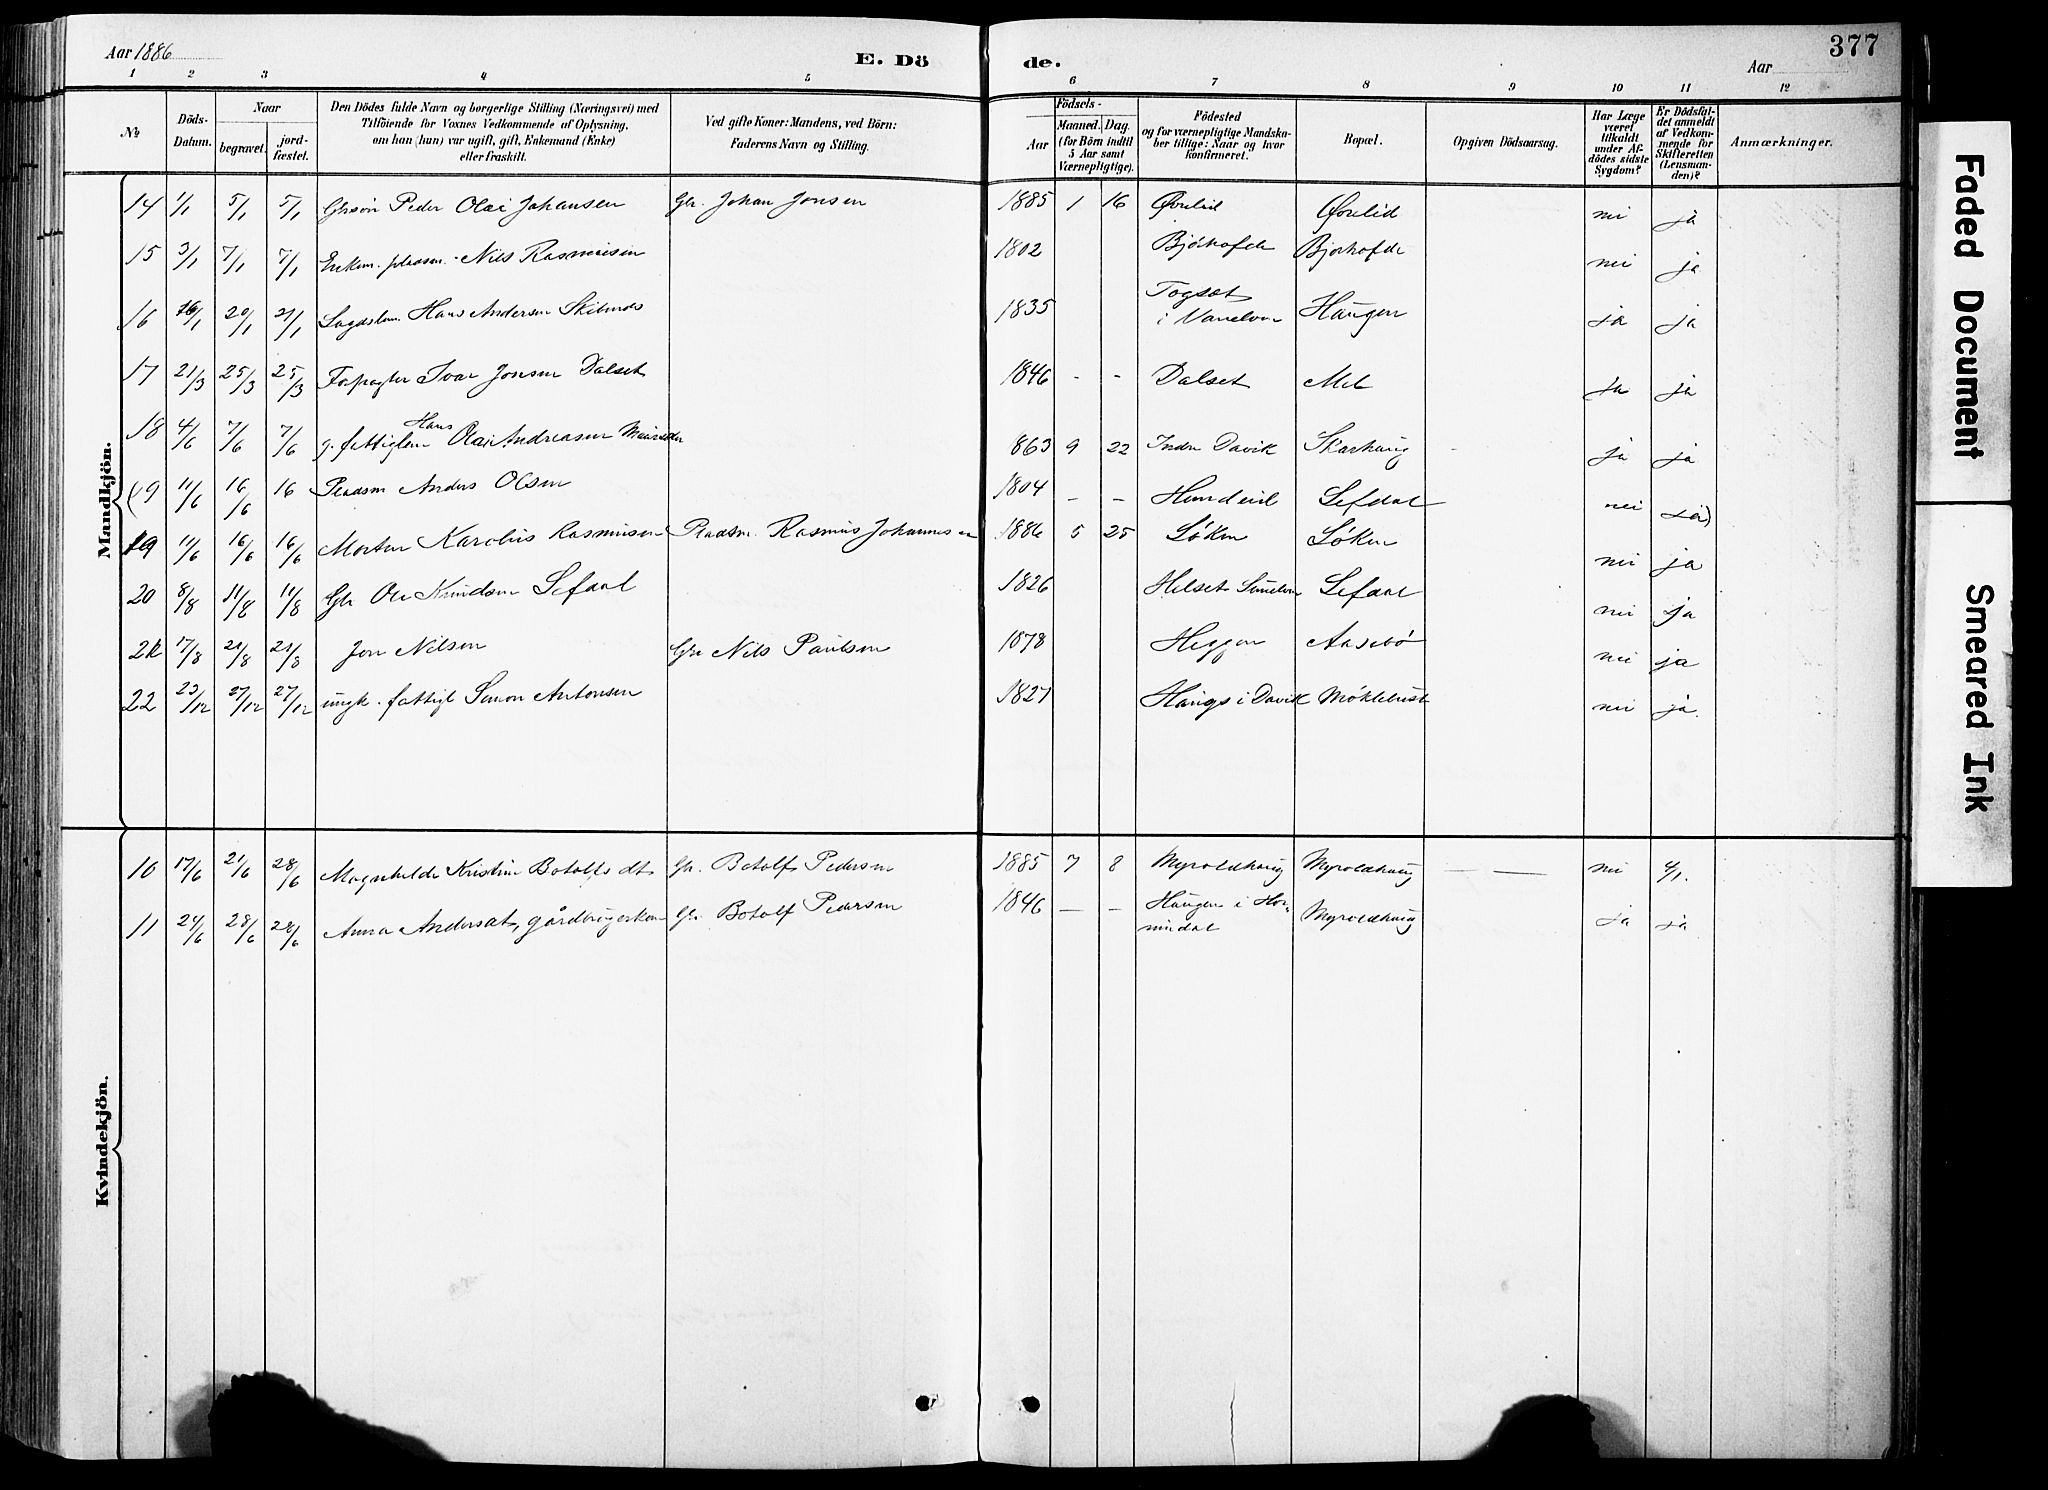 Aar 1886
E. Dö
de.
Aar
377
1 2 3 4 5 6 7 8 9 10 11 12
№
Döds-Datum.
Naar
begravet.
jord-fæstet.
Den Dödes fulde Navn og borgerlige Stilling (Næringsvei) med
Tilföiende for Voxnes Vedkommende af Oplysning,
om han (hun) var ugift, gift, Enkemand (Enke)
eller fraskilt.
Ved gifte Koner: Mandens, ved Börn:
Faderens Navn og Stilling.
Födsels-
Aar
Maaned. Dag.
(for Börn indtil
5 Aar samt
Værnepligtige).
Födested
og for værnepligtige Mandska-
ber tillige: Naar og hvor
konfirmeret.
Bopæl.
Opgiven Dödsaarsag.
Har Læge
været
tilkaldt
under Af-
dödes sidste
Sygdom?
Er Dödsfal-
det anmeldt
af Vedkom-
mende for
Skifteretten
(Lensman-
den)?
Anmærkninger.
Mandkjön.
14 1/1 5/1 5/1 Gbrsøn Peder Olai Johansen Gbr. Johan Jonsen 1885 1 16 Øvrelid Øvrelid nei ja
15 3/1 7/1 7/1 Enkem. pladsm. Nils Rasmusen 1802 Bjørhofde Bjorhofde nei ja
16 16/1 20/1 21/1 Hans Andersen 1835 i Vanelven Haugen ja ja
17 21/3 25/3 25/3 Forpagter Ivar Jonsen Dalset 1846 - - Dalset Mel ja ja
18 4/6 7/6 7/6 g. fattiglem Hans Olai Andreasen 863 9 22 Indre Davik Skarhaug ja ja
(19 11/6 16/6 16 Pladsm Anders Olsen 1804 - - Hundeid Lefdal nei ja)
19 11/6 16/6 16/6 Morten Karolus Rasmusen Pladsm. Rasmus Johannesen 1886 5 25 Løken Løken nei ja
20 8/8 11/8 11/8 Gbr Ole Knudsen Lefdal 1826 Helset Lefdal nei ja
21 17/8 21/8 21/8 Jon Nilsen Gbr Nils Paulsen 1878 Heggen Aasebø nei ja
22 23/12 27/12 27/12 ungk. fattigl Simon Antonsen 1827 Haugs i Davik Møklebust nei ja.
Kvindekjön.
10 17/6 21/6 28/6 Magnhilde Kristine Botolfs dt Gbr. Botolf Pedersen 1885 7 8 Myroldhaug Myroldhaug nei
11 24/6 28/6 28/6 Anna Andersdt, gårdbrugerkone Gbr. Botolf Pedersen 1846 — — Haugen i Hornindal Myroldhaug ja ja
Faded Document
Smeared Ink